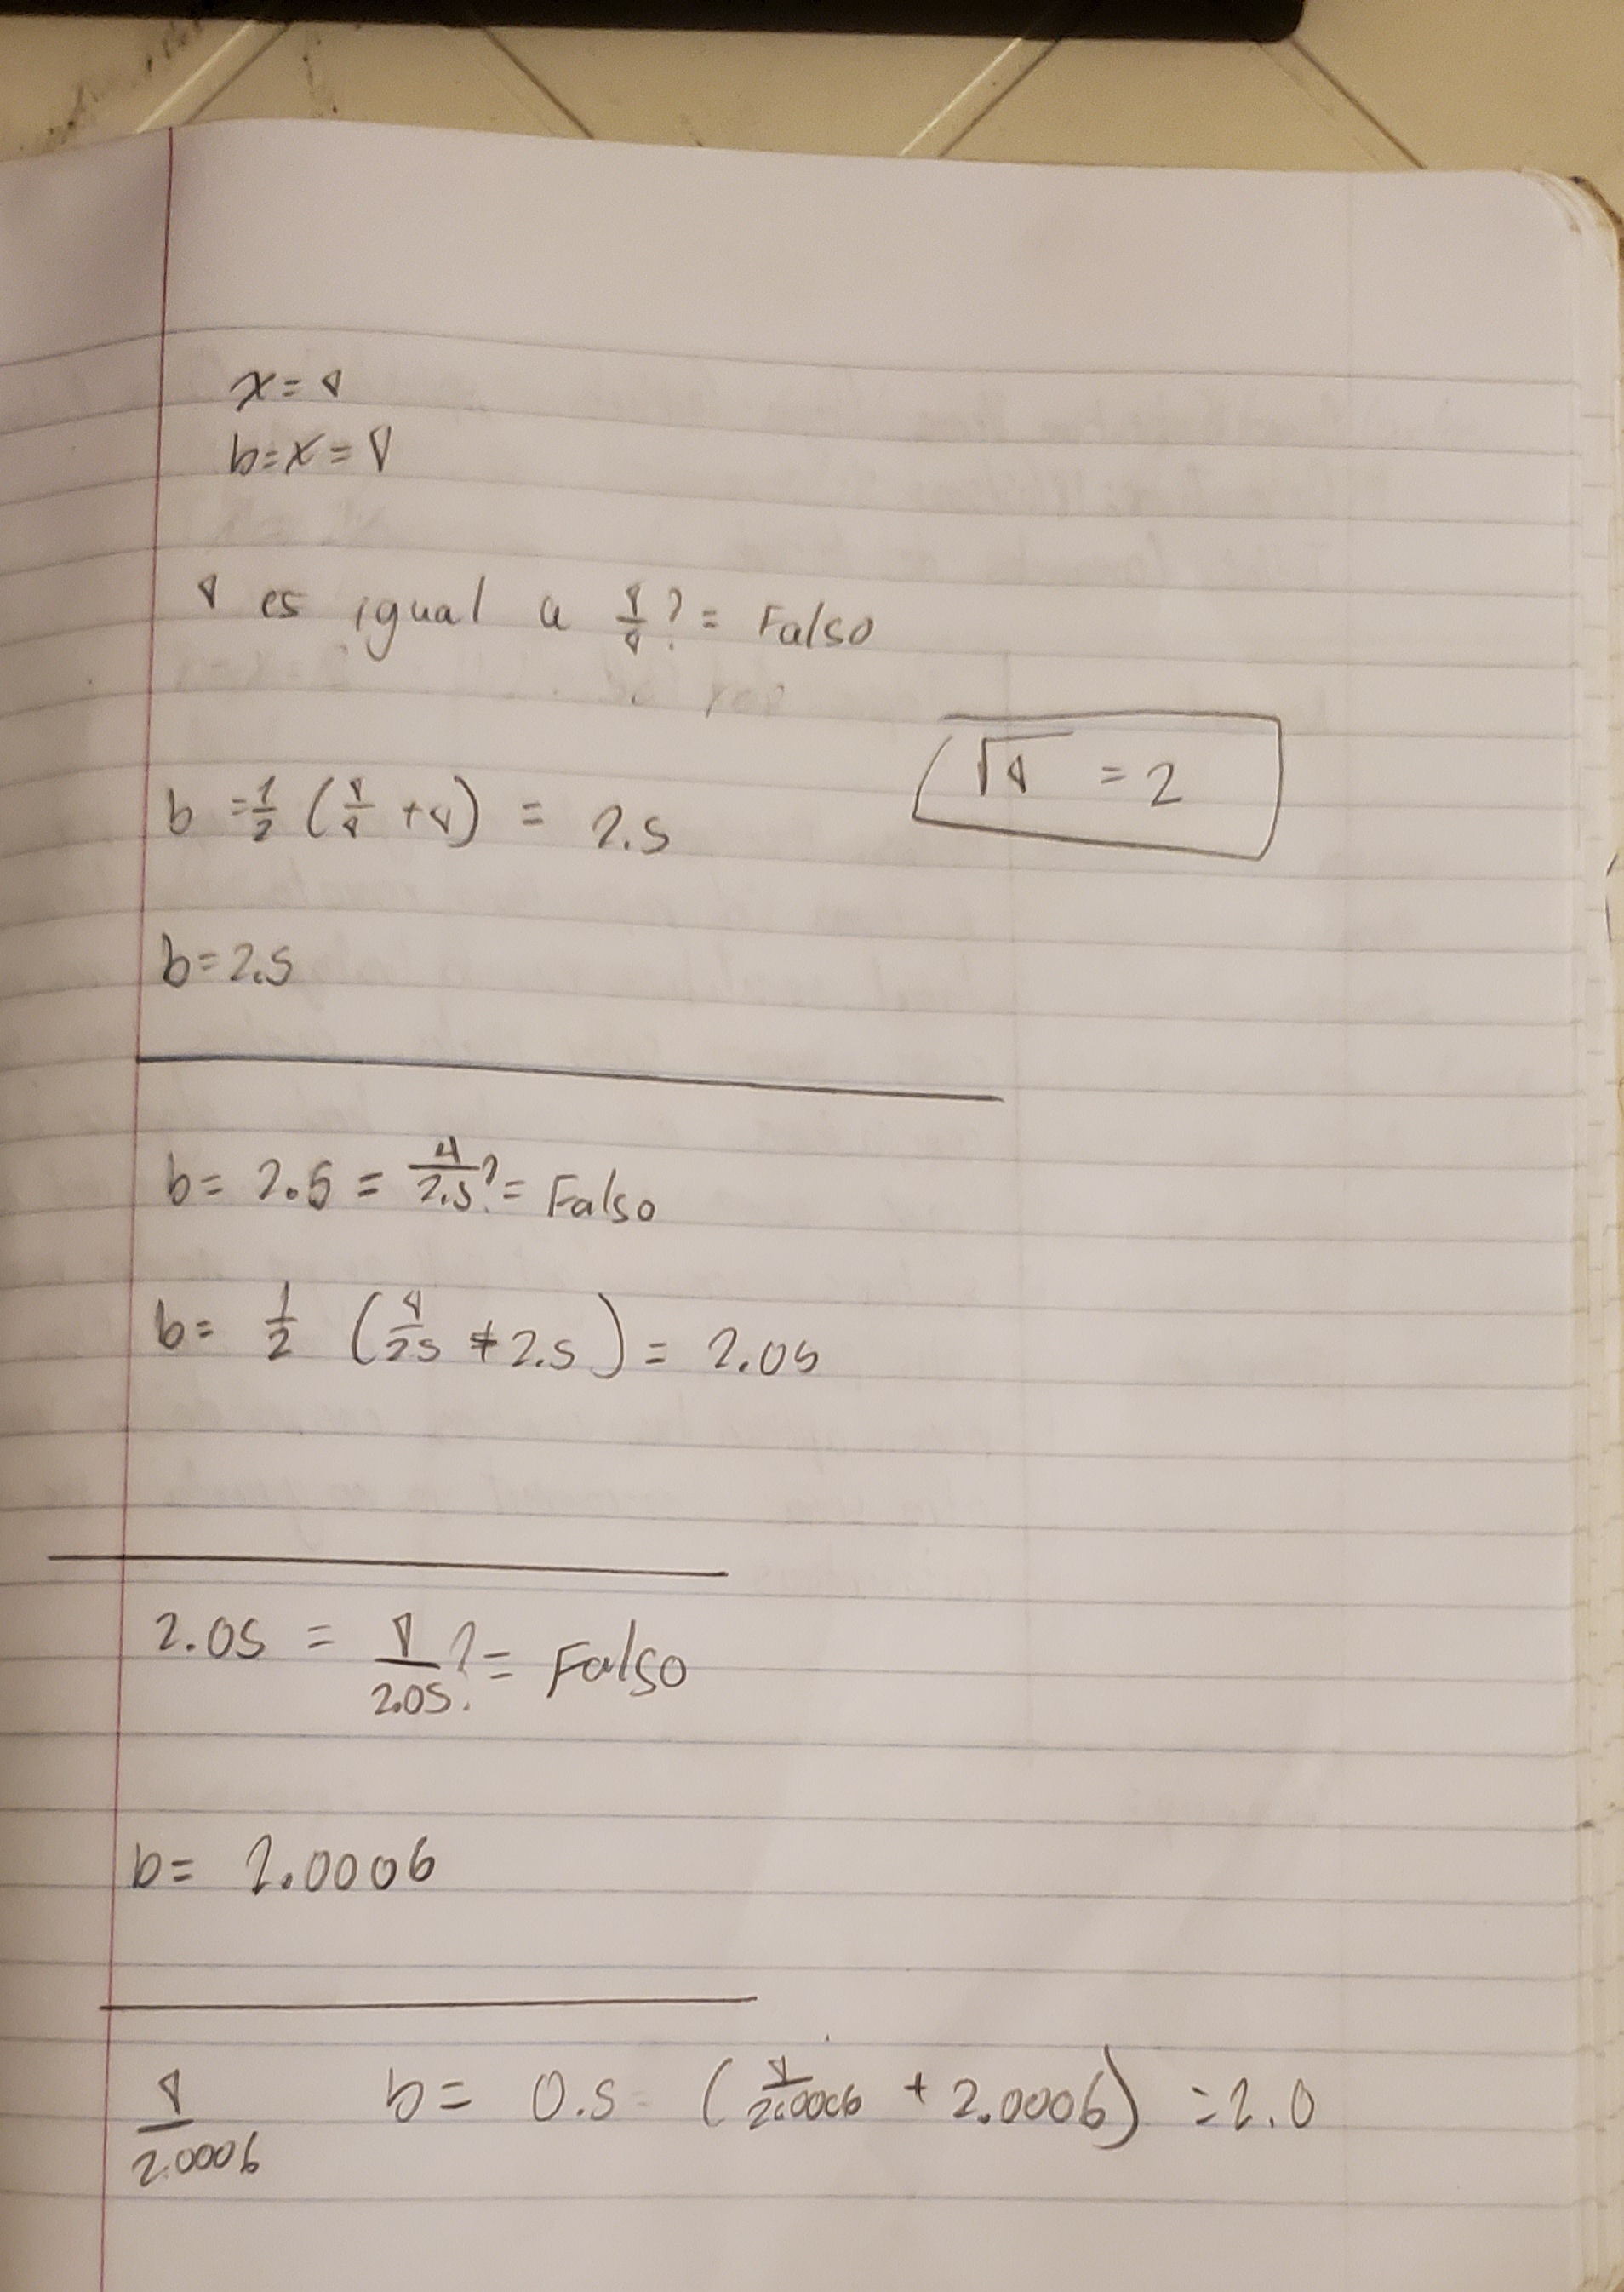 x = 4
b = x = 4
4 es igual a 4/4? = Falso
b = 1/2 (4/4 + 4) = 2.5
√4 = 2
b = 2.5
b = 2.5 = 4/2.5? = Falso
b = 1/2 (4/2.5 + 2.5) = 2.05
2.05 = 4/2.05? = Falso
b = 2.0006
4/2.0006 b = 0.5 (4/2.0006 + 2.0006) = 2.0